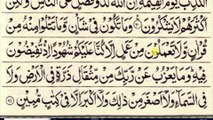 الَّذِبَ يَوْمَ الْقِيٰمَةِ اِنَّ اللّٰهَ لَذُوْ فَضْلٍ عَلَى النَّاسِ وَلٰكِنَّ
اَكْثَرَهُمْ لَا يَشْكُرُوْنَ وَمَا تَكُوْنُ فِيْ شَاْنٍ وَّمَا تَتْلُوْا مِنْهُ مِنْ
قُرْاٰنٍ وَّلَا تَعْمَلُوْنَ مِنْ عَمَلٍ اِلَّا كُنَّا عَلَيْكُمْ شُهُوْدًا اِذْ تُفِيْضُوْنَ
فِيْهِ وَمَا يَعْزُبُ عَنْ رَّبِّكَ مِنْ مِّثْقَالِ ذَرَّةٍ فِي الْاَرْضِ وَلَا فِي
السَّمَآءِ وَلَا اَصْغَرَ مِنْ ذٰلِكَ وَلَا اَكْبَرَ اِلَّا فِيْ كِتٰبٍ مُّبِيْنٍ